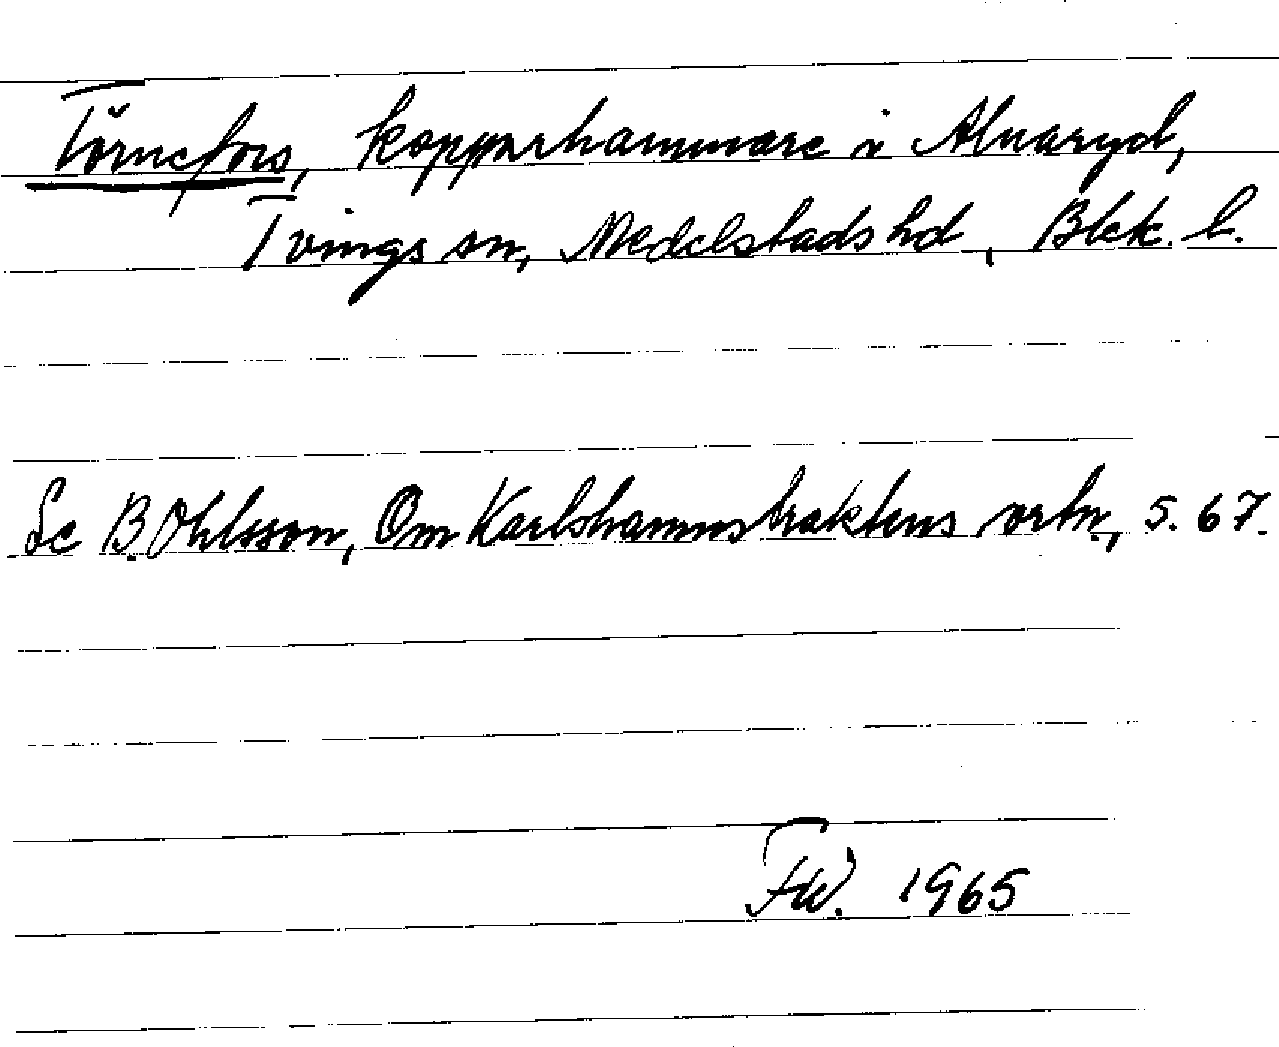 Törnefors, kopparhammare i Alnaryd,
Tvings sn, Medelstads hd, Blek. l.
Se B. Ohlsson, Om Karlshamnstraktens ortn., s. 67.
FW. 1965